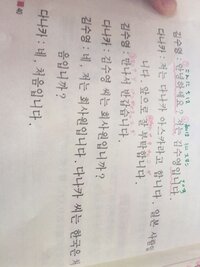 김수영 : 안녕하세요? 저는 김수영입니다.
다나카 : 저는 다나카 아스카라고 합니다. 일본 사람입
니다. 앞으로 잘 부탁합니다.
김수영 : 만나서 반갑습니다.
다나카 : 김수영 씨는 회사원입니까?
김수영 : 네, 저는 회사원입니다. 다나카 씨는 한국은 처
음입니까?
다나카 : 네, 처음입니다.
40